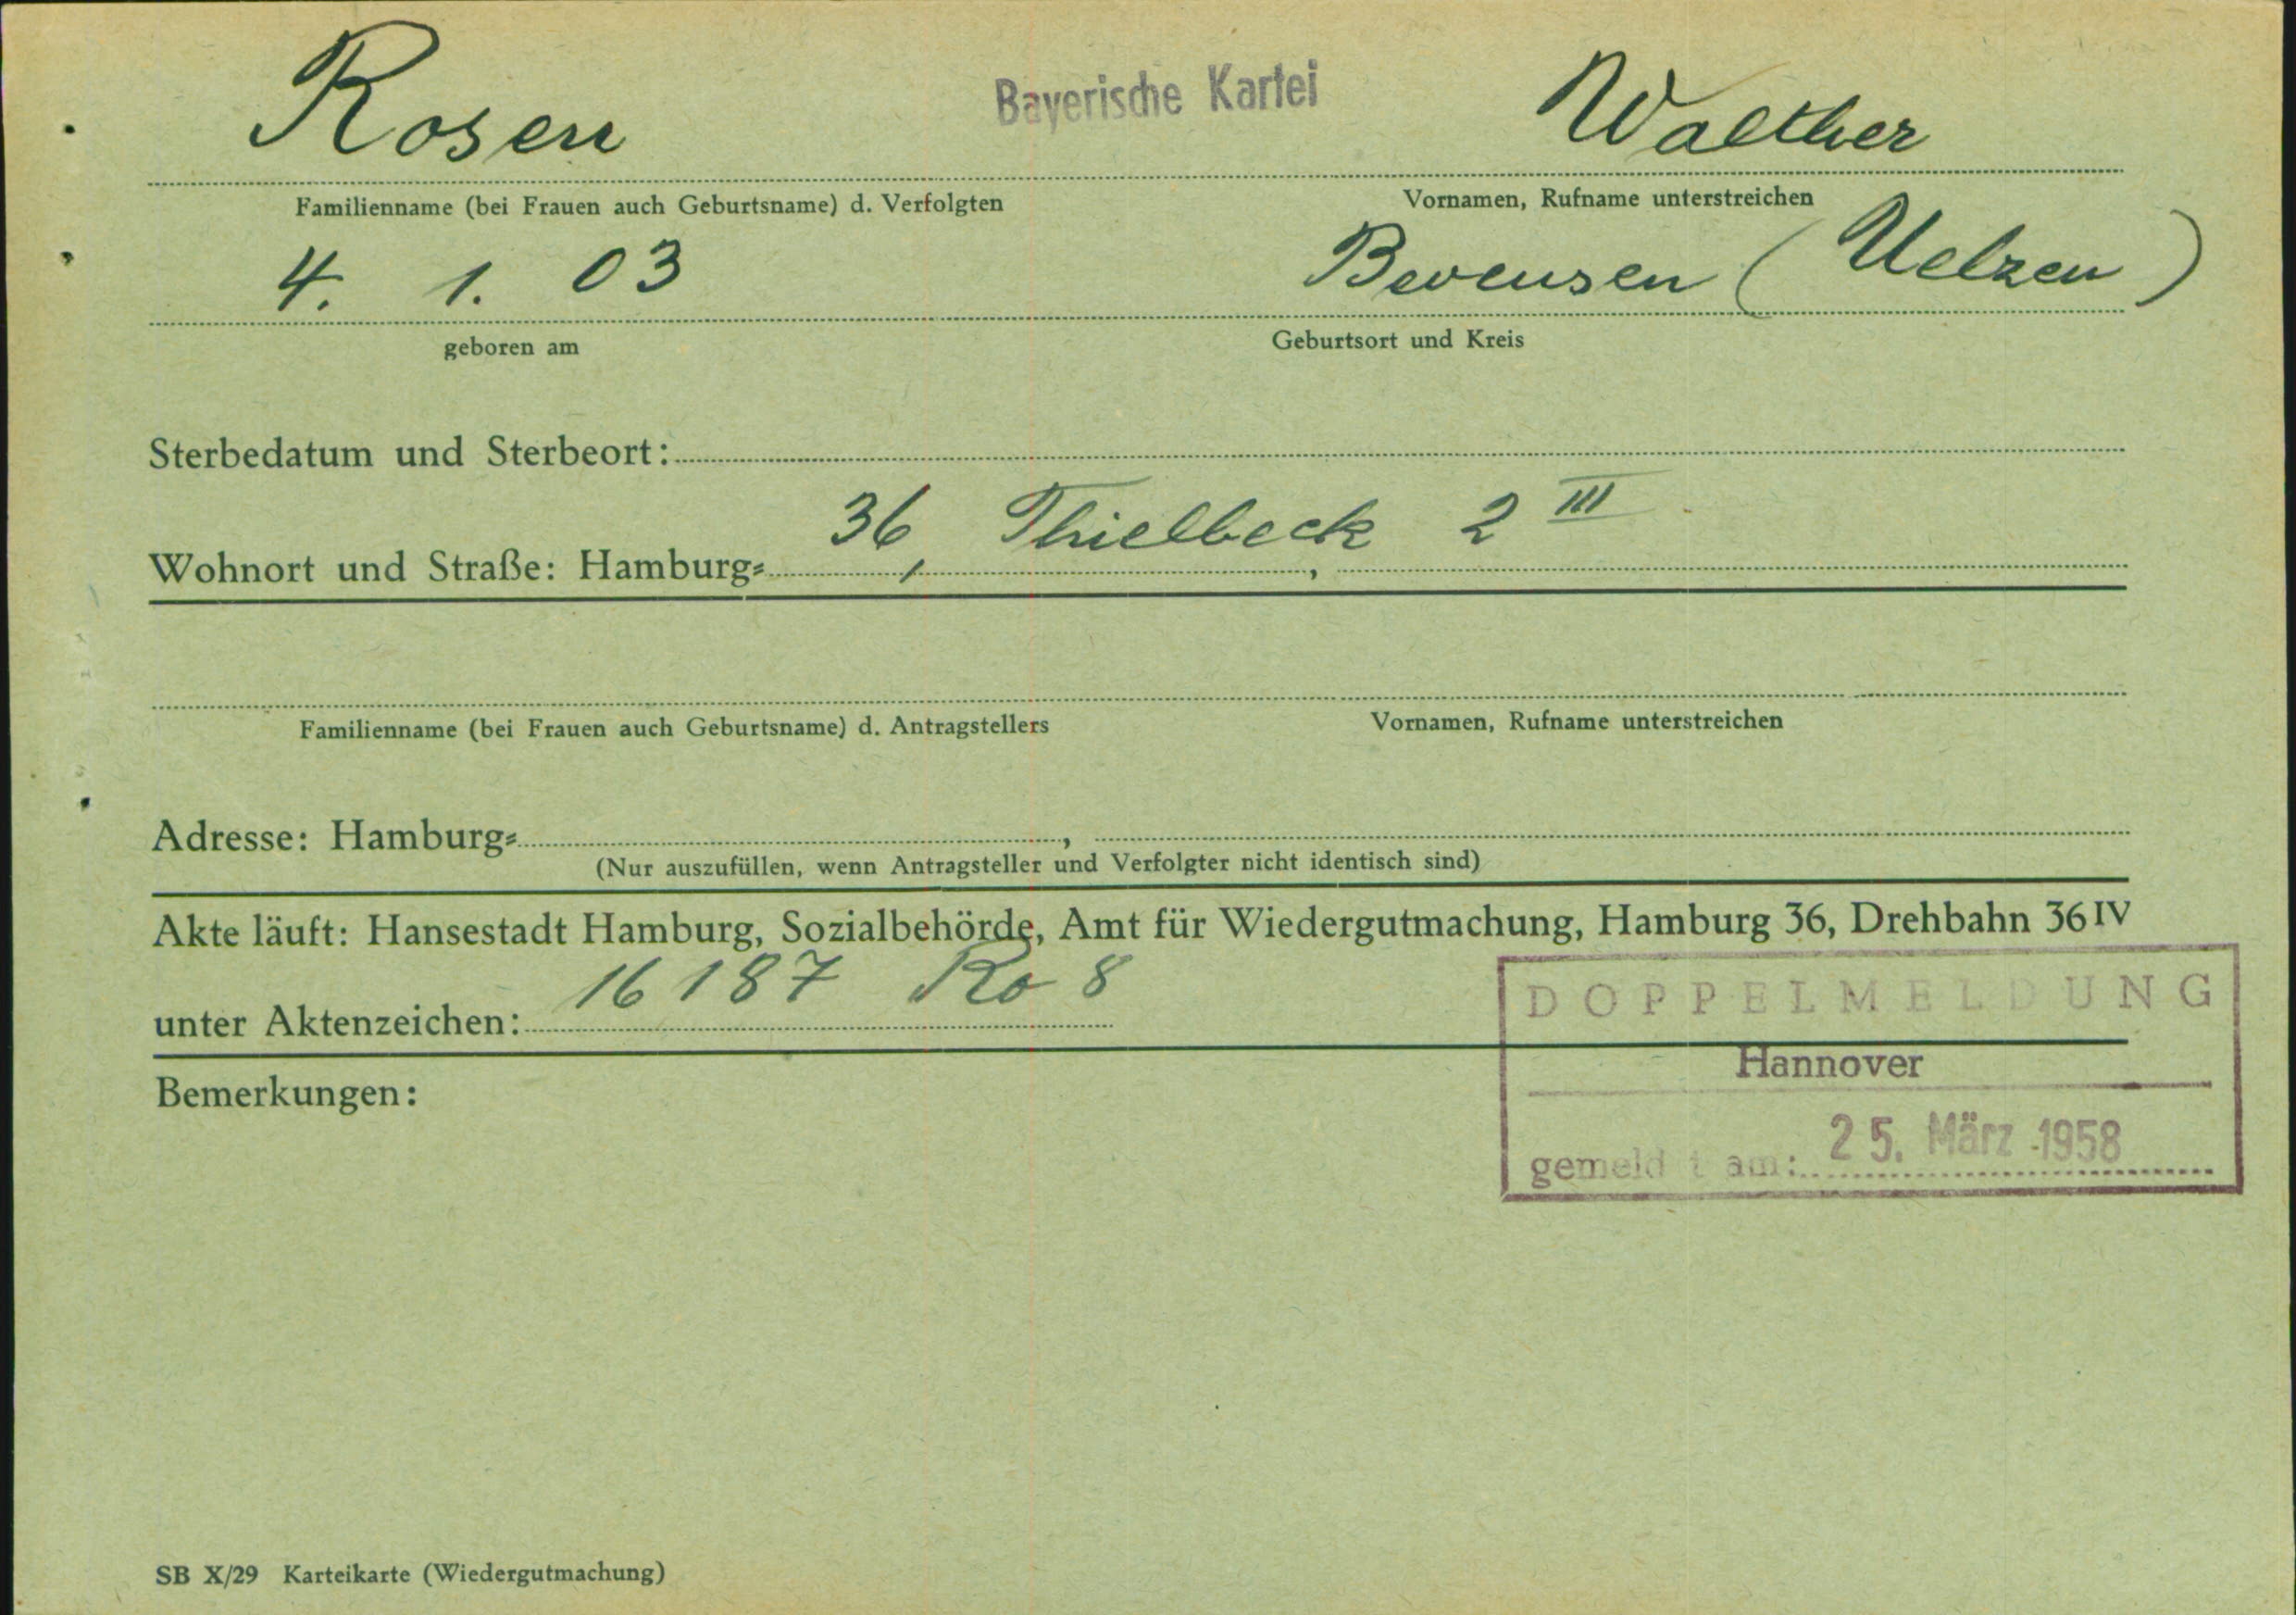 Rosen Bayerische Kartei Walther
Familienname (bei Frauen auch Geburtsname) d. Verfolgten Vornamen, Rufname unterstreichen
4. 1. 03 Bevensen (Uelzen)
geboren am Geburtsort und Kreis
Sterbedatum und Sterbeort:
Wohnort und Straße: Hamburg- 36, Thielbeck 2 III
Familienname (bei Frauen auch Geburtsname) d. Antragstellers Vornamen, Rufname unterstreichen
Adresse: Hamburg- ,
(Nur auszufüllen, wenn Antragsteller und Verfolgter nicht identisch sind)
Akte läuft: Hansestadt Hamburg, Sozialbehörde, Amt für Wiedergutmachung, Hamburg 36, Drehbahn 36 IV
unter Aktenzeichen: 16187 Ro 8
DOPPELMELDUNG
Hannover
Bemerkungen:
gemeldet am: 25. März 1958
SB X/29 Karteikarte (Wiedergutmachung)